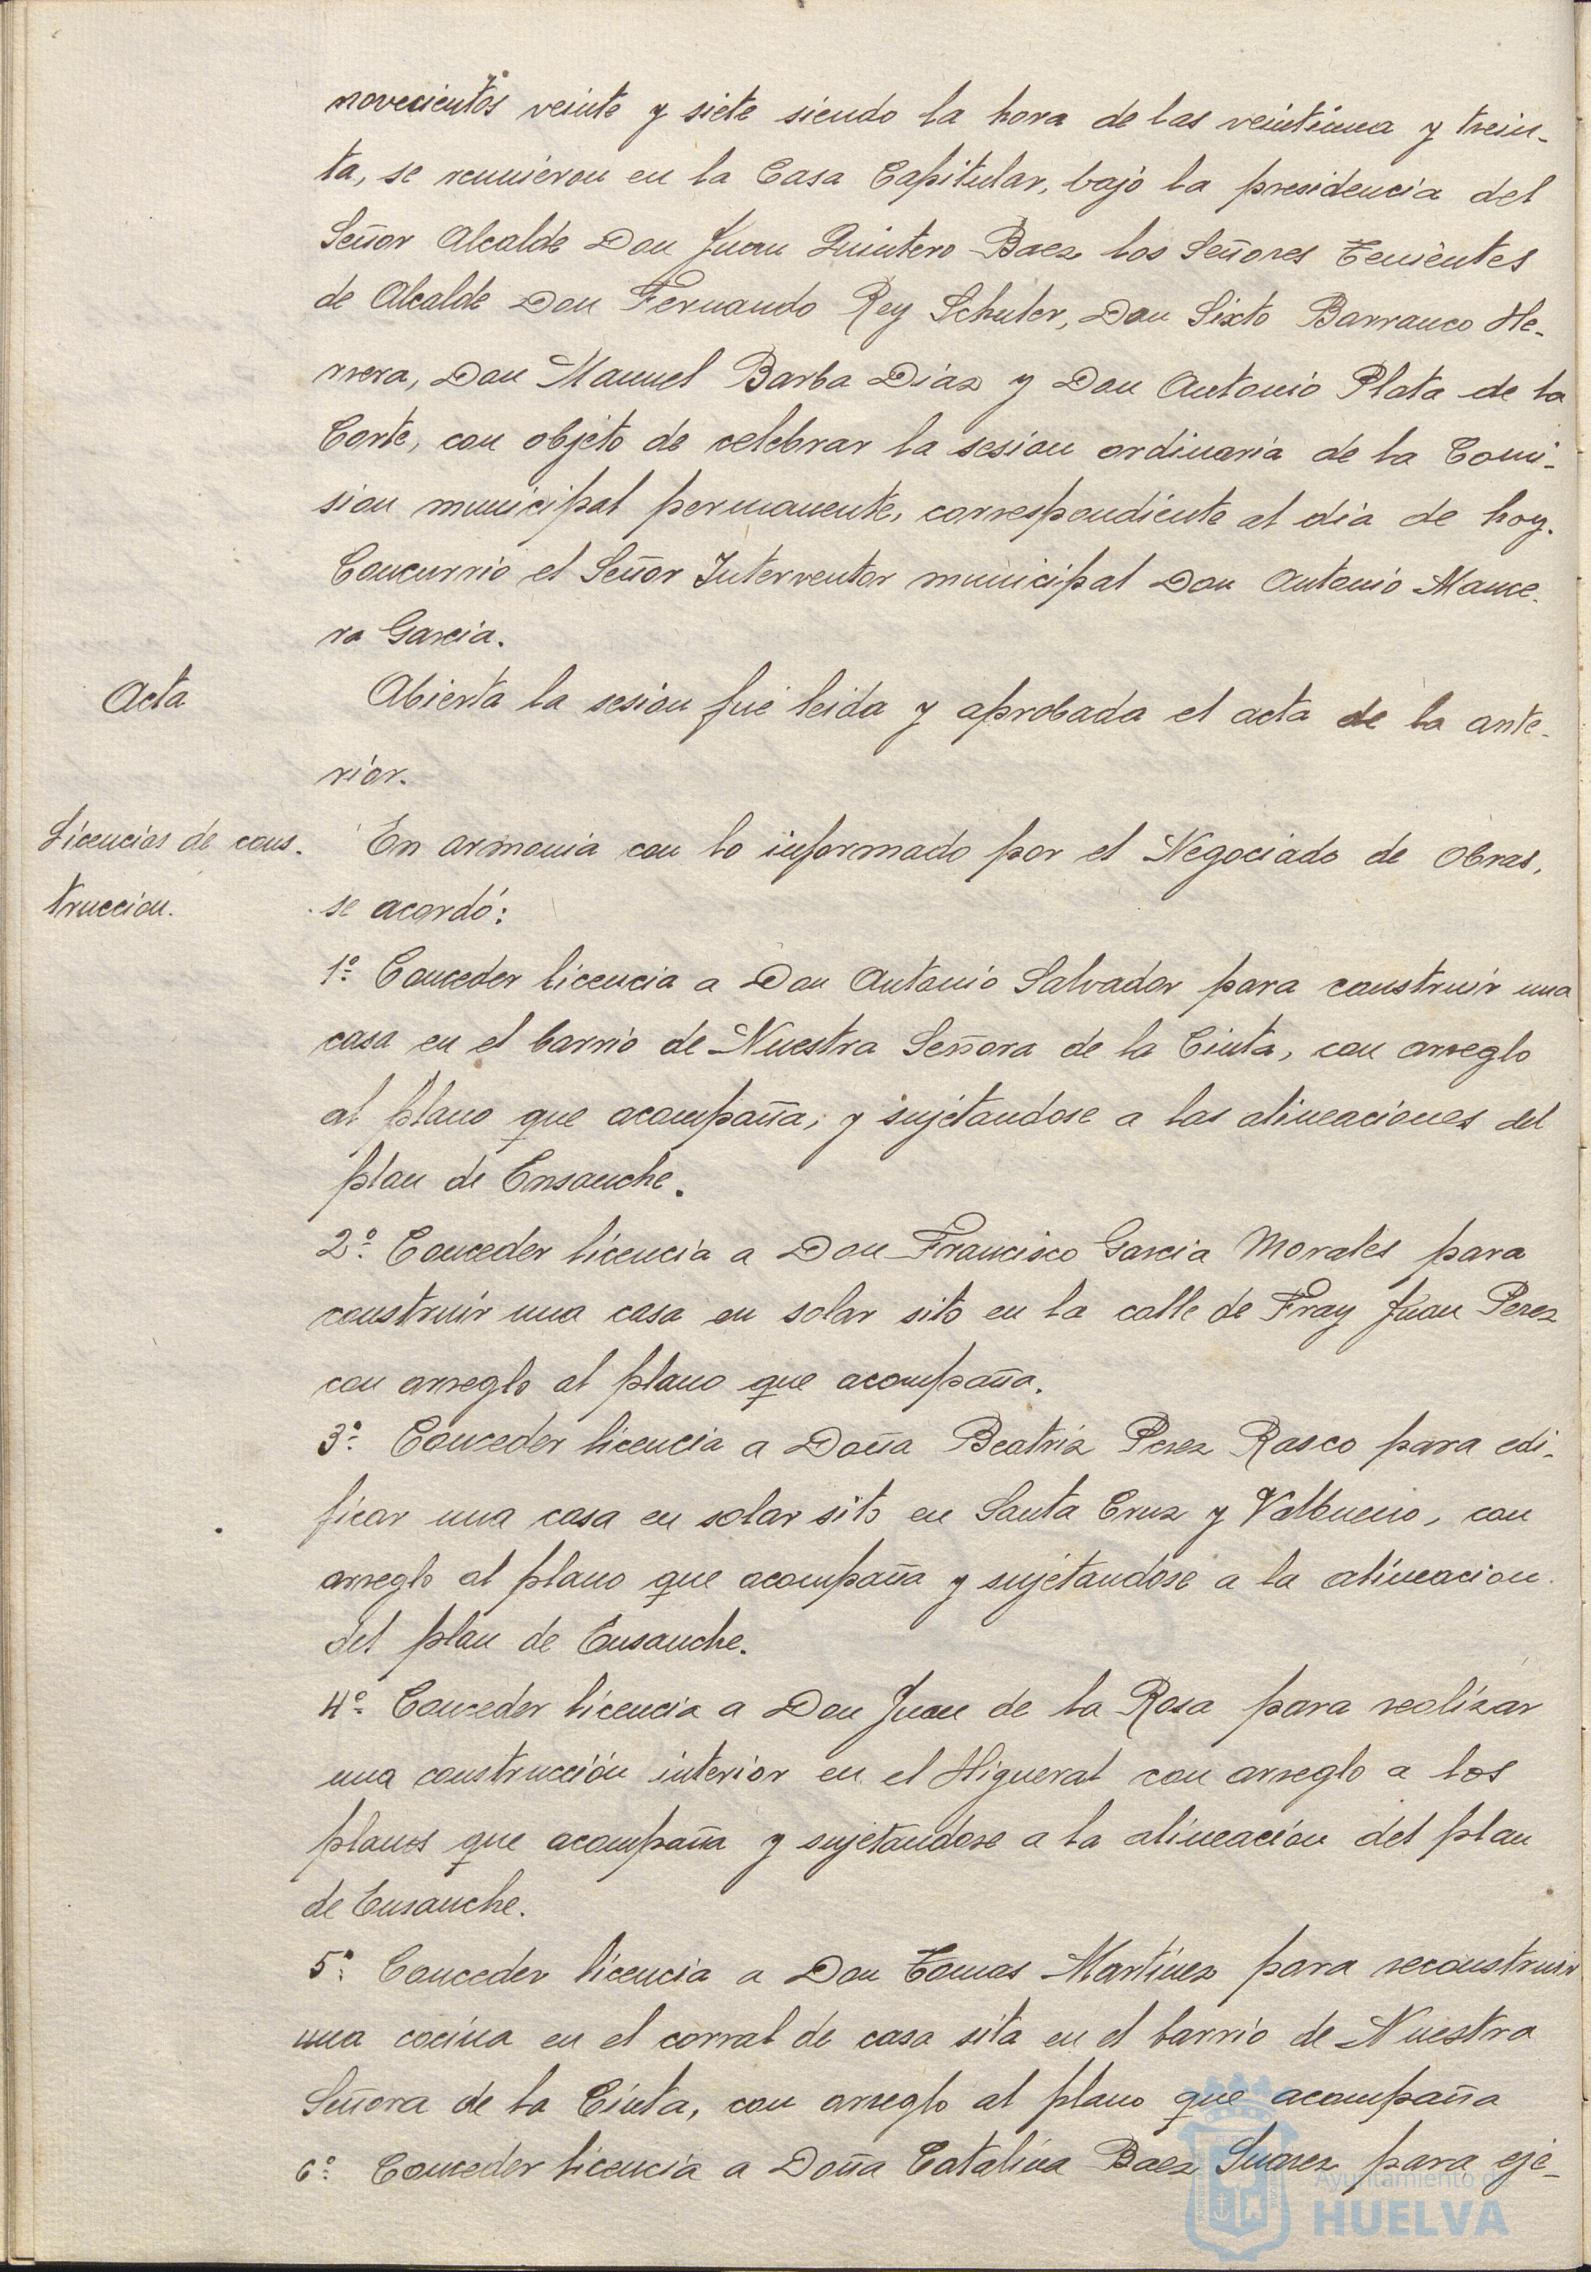 novecientos veinte y siete siendo la hora de las veintiuna y trein-
ta, se reunieron en la Casa Capitular, bajo la presidencia del
Señor Alcalde Don Juan Quintero Baez los Señores Tenientes
de Alcalde Don Fernando Rey Schuler, Don Sixto Barranco He-
rrera, Don Manuel Barba Diaz y Don Antonio Plata de la
Corte, con objeto de celebrar la sesion ordinaria de la Comi-
sion municipal permanente, correspondiente al dia de hoy.
Concurrio el Señor Interventor municipal Don Antonio Mance-
ra Garcia.
Acta
Abierta la sesion fué leida y aprobada el acta de la ante-
rior.
Licencias de cons-
truccion.
En armonia con lo informado por el Negociado de Obras,
se acordó:
1º Conceder licencia a Don Antonio Salvador para construir una
casa en el barrio de Nuestra Señora de la Cinta, con arreglo
al plano que acompaña, y sujetandose a las alineaciones del
plan de Ensanche.
2º Conceder licencia a Don Francisco Garcia Morales para
construir una casa en solar sito en la calle de Fray Juan Perez
con arreglo al plano que acompaña.
3º Conceder licencia a Doña Beatriz Perez Rasco para edi-
ficar una casa en solar sito en Santa Cruz y Valbueno, con
arreglo al plano que acompaña y sujetandose a la alineacion
del plan de Ensanche.
4º Conceder licencia a Don Juan de la Rosa para realizar
una construcción interior en el Higueral con arreglo a los
planos que acompaña y sujetandose a la alineacion del plan
de Ensanche.
5º Conceder licencia a Don Tomas Martinez para reconstruir
una cocina en el corral de casa sita en el barrio de Nuestra
Señora de la Cinta, con arreglo al plano que acompaña
6º Conceder licencia a Doña Catalina Baez Suarez para eje-
Ayuntamiento de
HUELVA